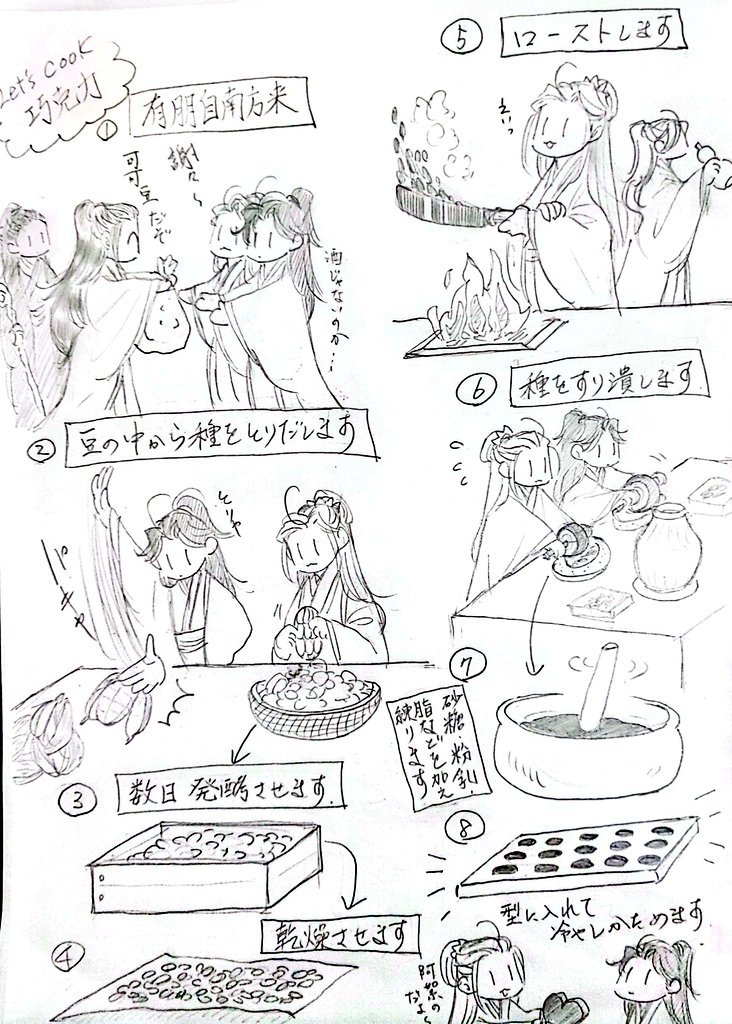 Let's cook
巧克力
① 有朋自南方来
謝々〜
可可豆だぞ
酒じゃないのか…
② 豆の中から種をとりだします
とりゃ
③ 数日発酵させます
④ 乾燥させます
⑤ ローストします
えいっ
⑥ 種をすり潰します
⑦ 砂糖、粉乳、
脂などを加え
練ります
⑧
型に入れて
冷やしかためます
阿絮の
だよ〜